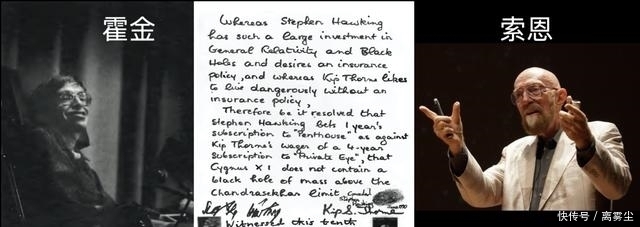 霍金
Whereas Stephen Hawking
has such a large investment in
General Relativity and Black
Holes and desires an insurance
policy, and whereas Kip Thorne likes
to live dangerously without an
insurance policy,
Therefore be it resolved that
Stephen Hawking bets 1 year's
subscription to "Penthouse" as against
Kip Thorne's wager of a 4-year
Subscription to "Private Eye", that
Cygnus X1 does not contain a
black hole of mass above the
Chandrasekhar limit.
Kip S. Thorne
Witnessed this tenth
索恩
快传号 / 离雾尘